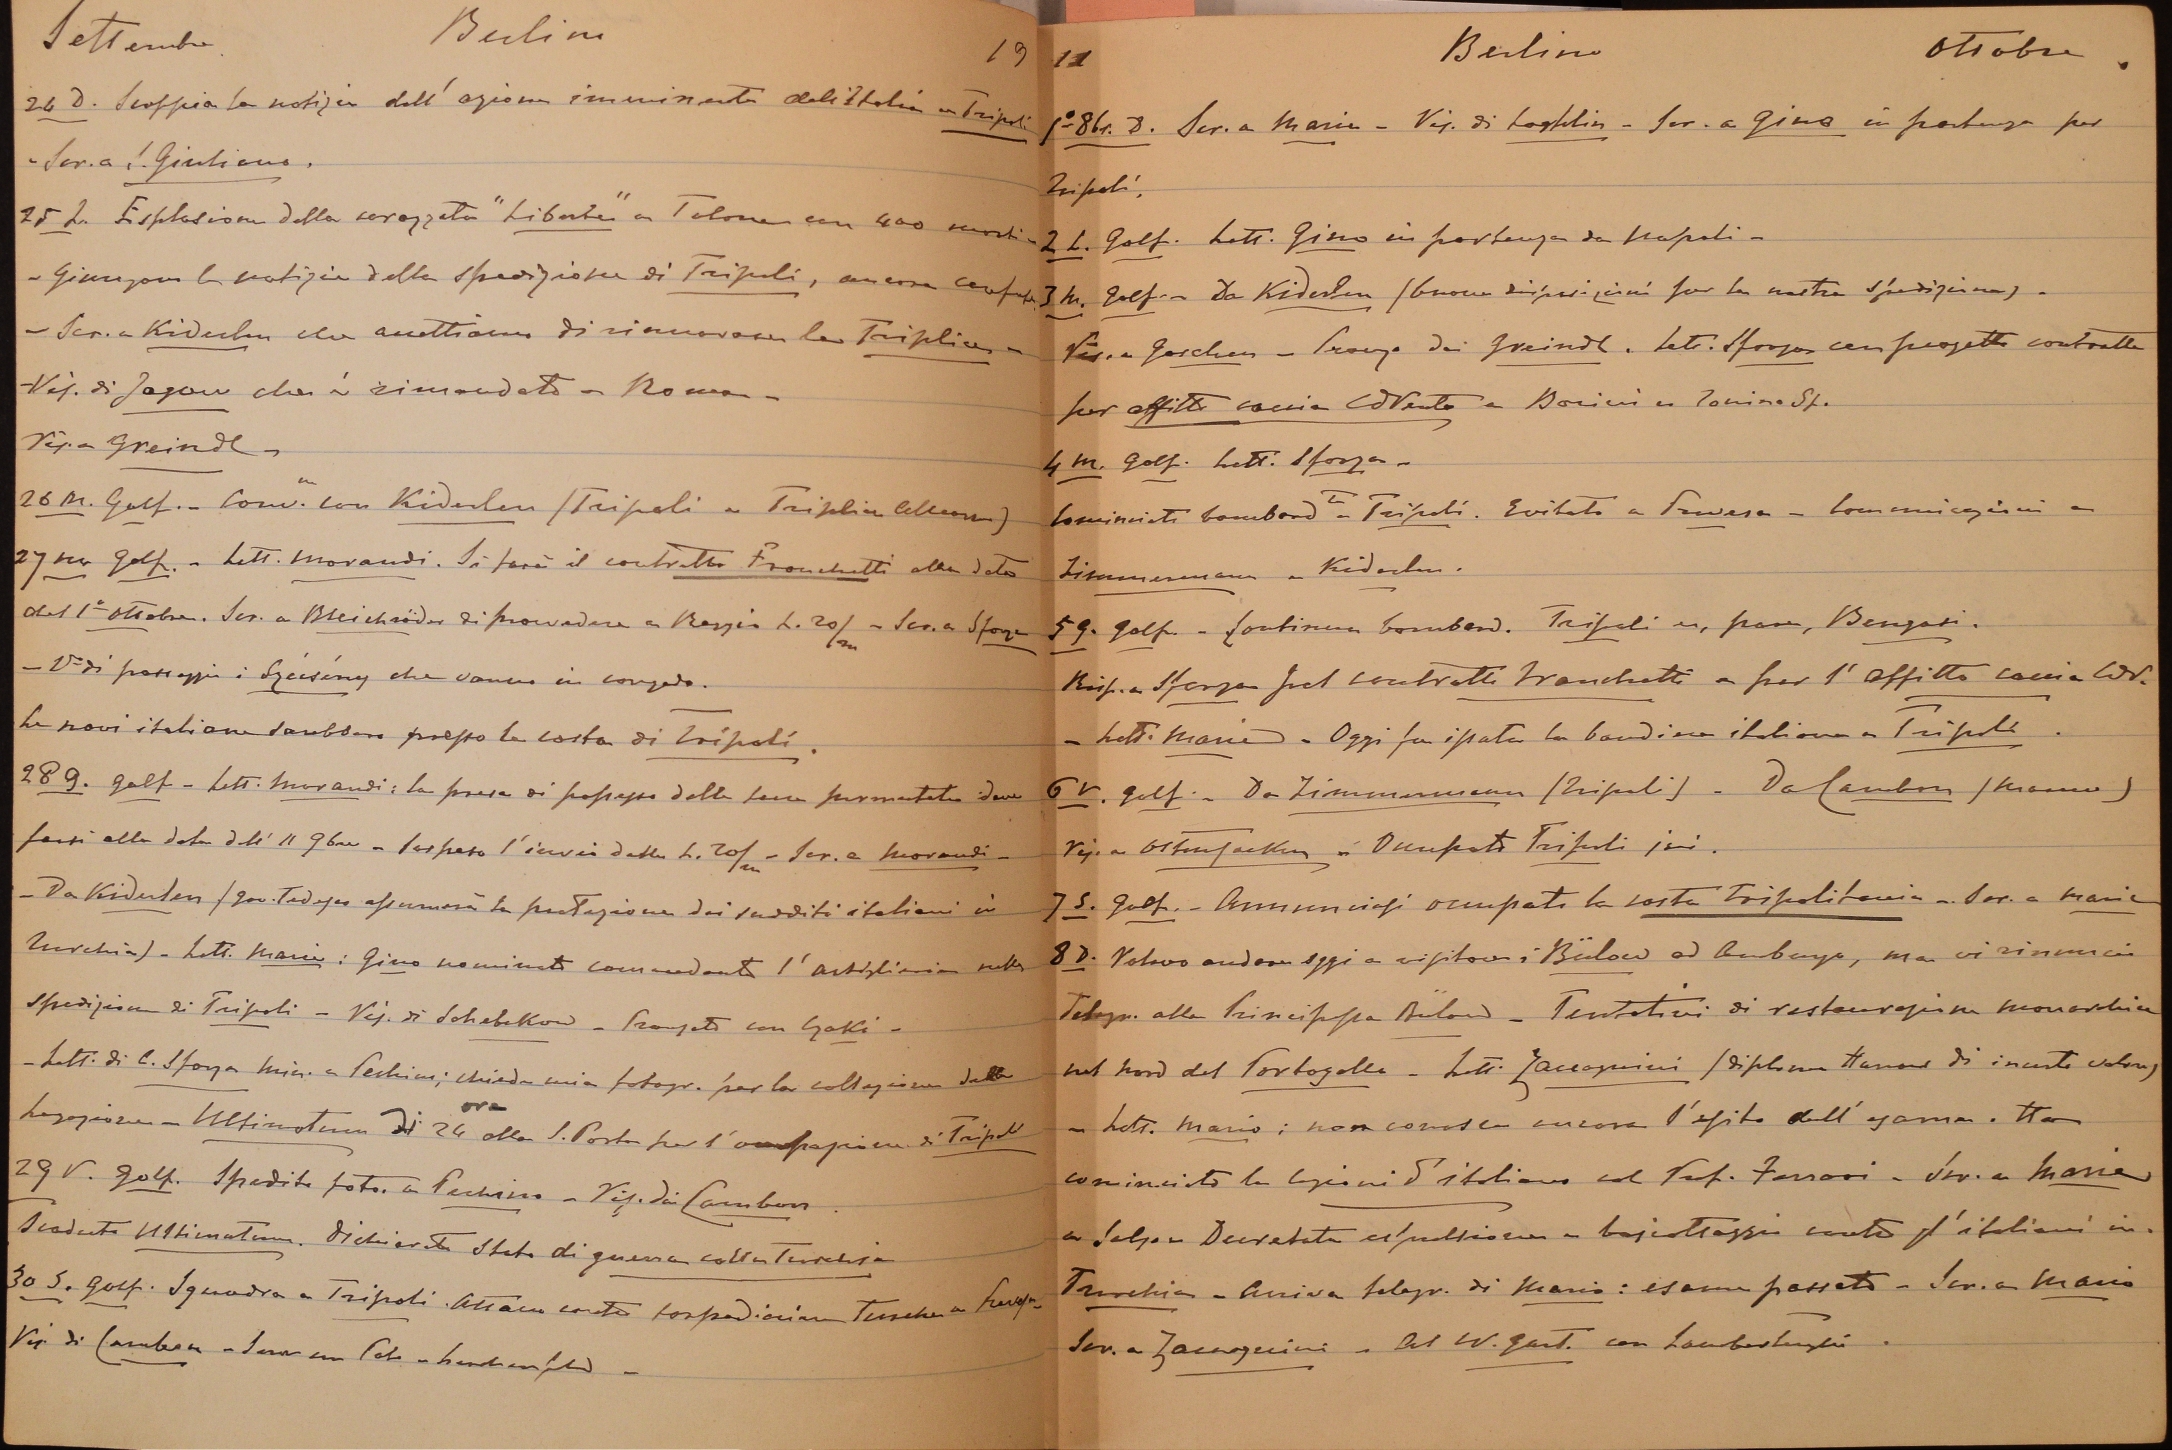 Settembre Berlino 19
24 D. Scoppia la notizia dell'azione imminente dell'Italia a Tripoli
- Scr. a S. Giuliano.
25 L. Esplosione della corazzata "Liberté" a Tolone con 400 morti -
- Giungono le notizie della spedizione di Tripoli, ancora confuse.
- Scr. a Kiderlen che accettiamo di rinnovare la Triplice -
Vis. di Jagow che è rimandato a Roma -
Vis. a Greindl -
26 M. Golf. - Conv.ne con Kiderlen (Tripoli e Triplice)
27 M. Golf. - Lett. Morandi. Si farà il contratto Franchetti alla data
del 1º ottobre. Scr. a Bleichröder di provvedere a Reggio L. 20/m - Scr. a Sforza
- Vª di passaggio i Szécsény che vanno in congedo.
Le navi italiane sarebbero presso la costa di Tripoli.
28 G. Golf - Lett. Morandi: la presa di possesso delle terre permutate deve
farsi alla data dell'11 9bre - Sospeso l'invio delle L. 20/m - Scr. a Morandi -
- Da Kiderlen (gov. tedesco assumerà la protezione dei sudditi italiani in
Turchia) - Lett. Maria: Gino nominato comandante l'artiglieria nella
spedizione di Tripoli - Vis. di Schebekow - Pranzato con
- Lett. di C. Sforza Min. a Pechino; chiede mia fotogr. per la collezione della
Legazione - Ultimatum di 24 ore alla S. Porta per l'occupazione di Tripoli
29 V. Golf. Spedita foto. a Pechino - Vis. dai Cambon.
Scaduto Ultimatum. Dichiarato stato di guerra colla Turchia
30 S. Golf. Squadra a Tripoli. Attacco contro torpediniere Turche a Prevesa -
Vis. di Cambon -
11 Berlino Ottobre.
1º 8br. D. Scr. a Maria - Vis. di - Scr. a Gino in partenza per
Tripoli.
2 L. Golf. Lett. Gino in partenza da Napoli -
3 M. Golf. - Da Kiderlen (buone disposizioni per la nostra spedizione) -
Vis. a Goschen - Pranzo dai Greindl. Lett. Sforza con progetto contratto
per affitto caccia CdVento a Bonini
4 M. Golf. Lett. Sforza -
Cominciato bombard.to a Tripoli. Evitato a Prevesa - Comunicazioni a
Zimmermann e Kiderlen.
5 G. Golf. - Continua bombard. Tripoli e, pare, Bengasi.
Risp. a Sforza pel contratto Franchetti e per l'affitto caccia CdV.
- Lett. Maria - Oggi fu issata la bandiera italiana a Tripoli.
6 V. Golf. - Da Zimmermann (Tripoli) - Da Cambon (Marocco)
Vis. a Ostensacken - Occupato Tripoli ieri.
7 S. Golf. - Annunciasi occupata la costa tripolitania - Scr. a Maria
8 D. Volevo andare oggi a visitare i Bülow ad Amburgo, ma vi rinuncio
Telegr. alla Principessa Bülow - Tentativi di restaurazione monarchica
nel nord del Portogallo - Lett. Zaccagnini (diploma di incerto valore)
- Lett. Mario: non conosce ancora l'esito dell'esame. Ha
cominciato le lezioni d'italiano col Prof. Ferrari - Scr. a Maria
Decretata espulsione e boicottaggio contro gl'italiani in
Turchia - Arriva telegr. di Mario: esame passato - Scr. a Mario
Scr. a Zaccagnini - Al W. Gart. con Lambertenghi.